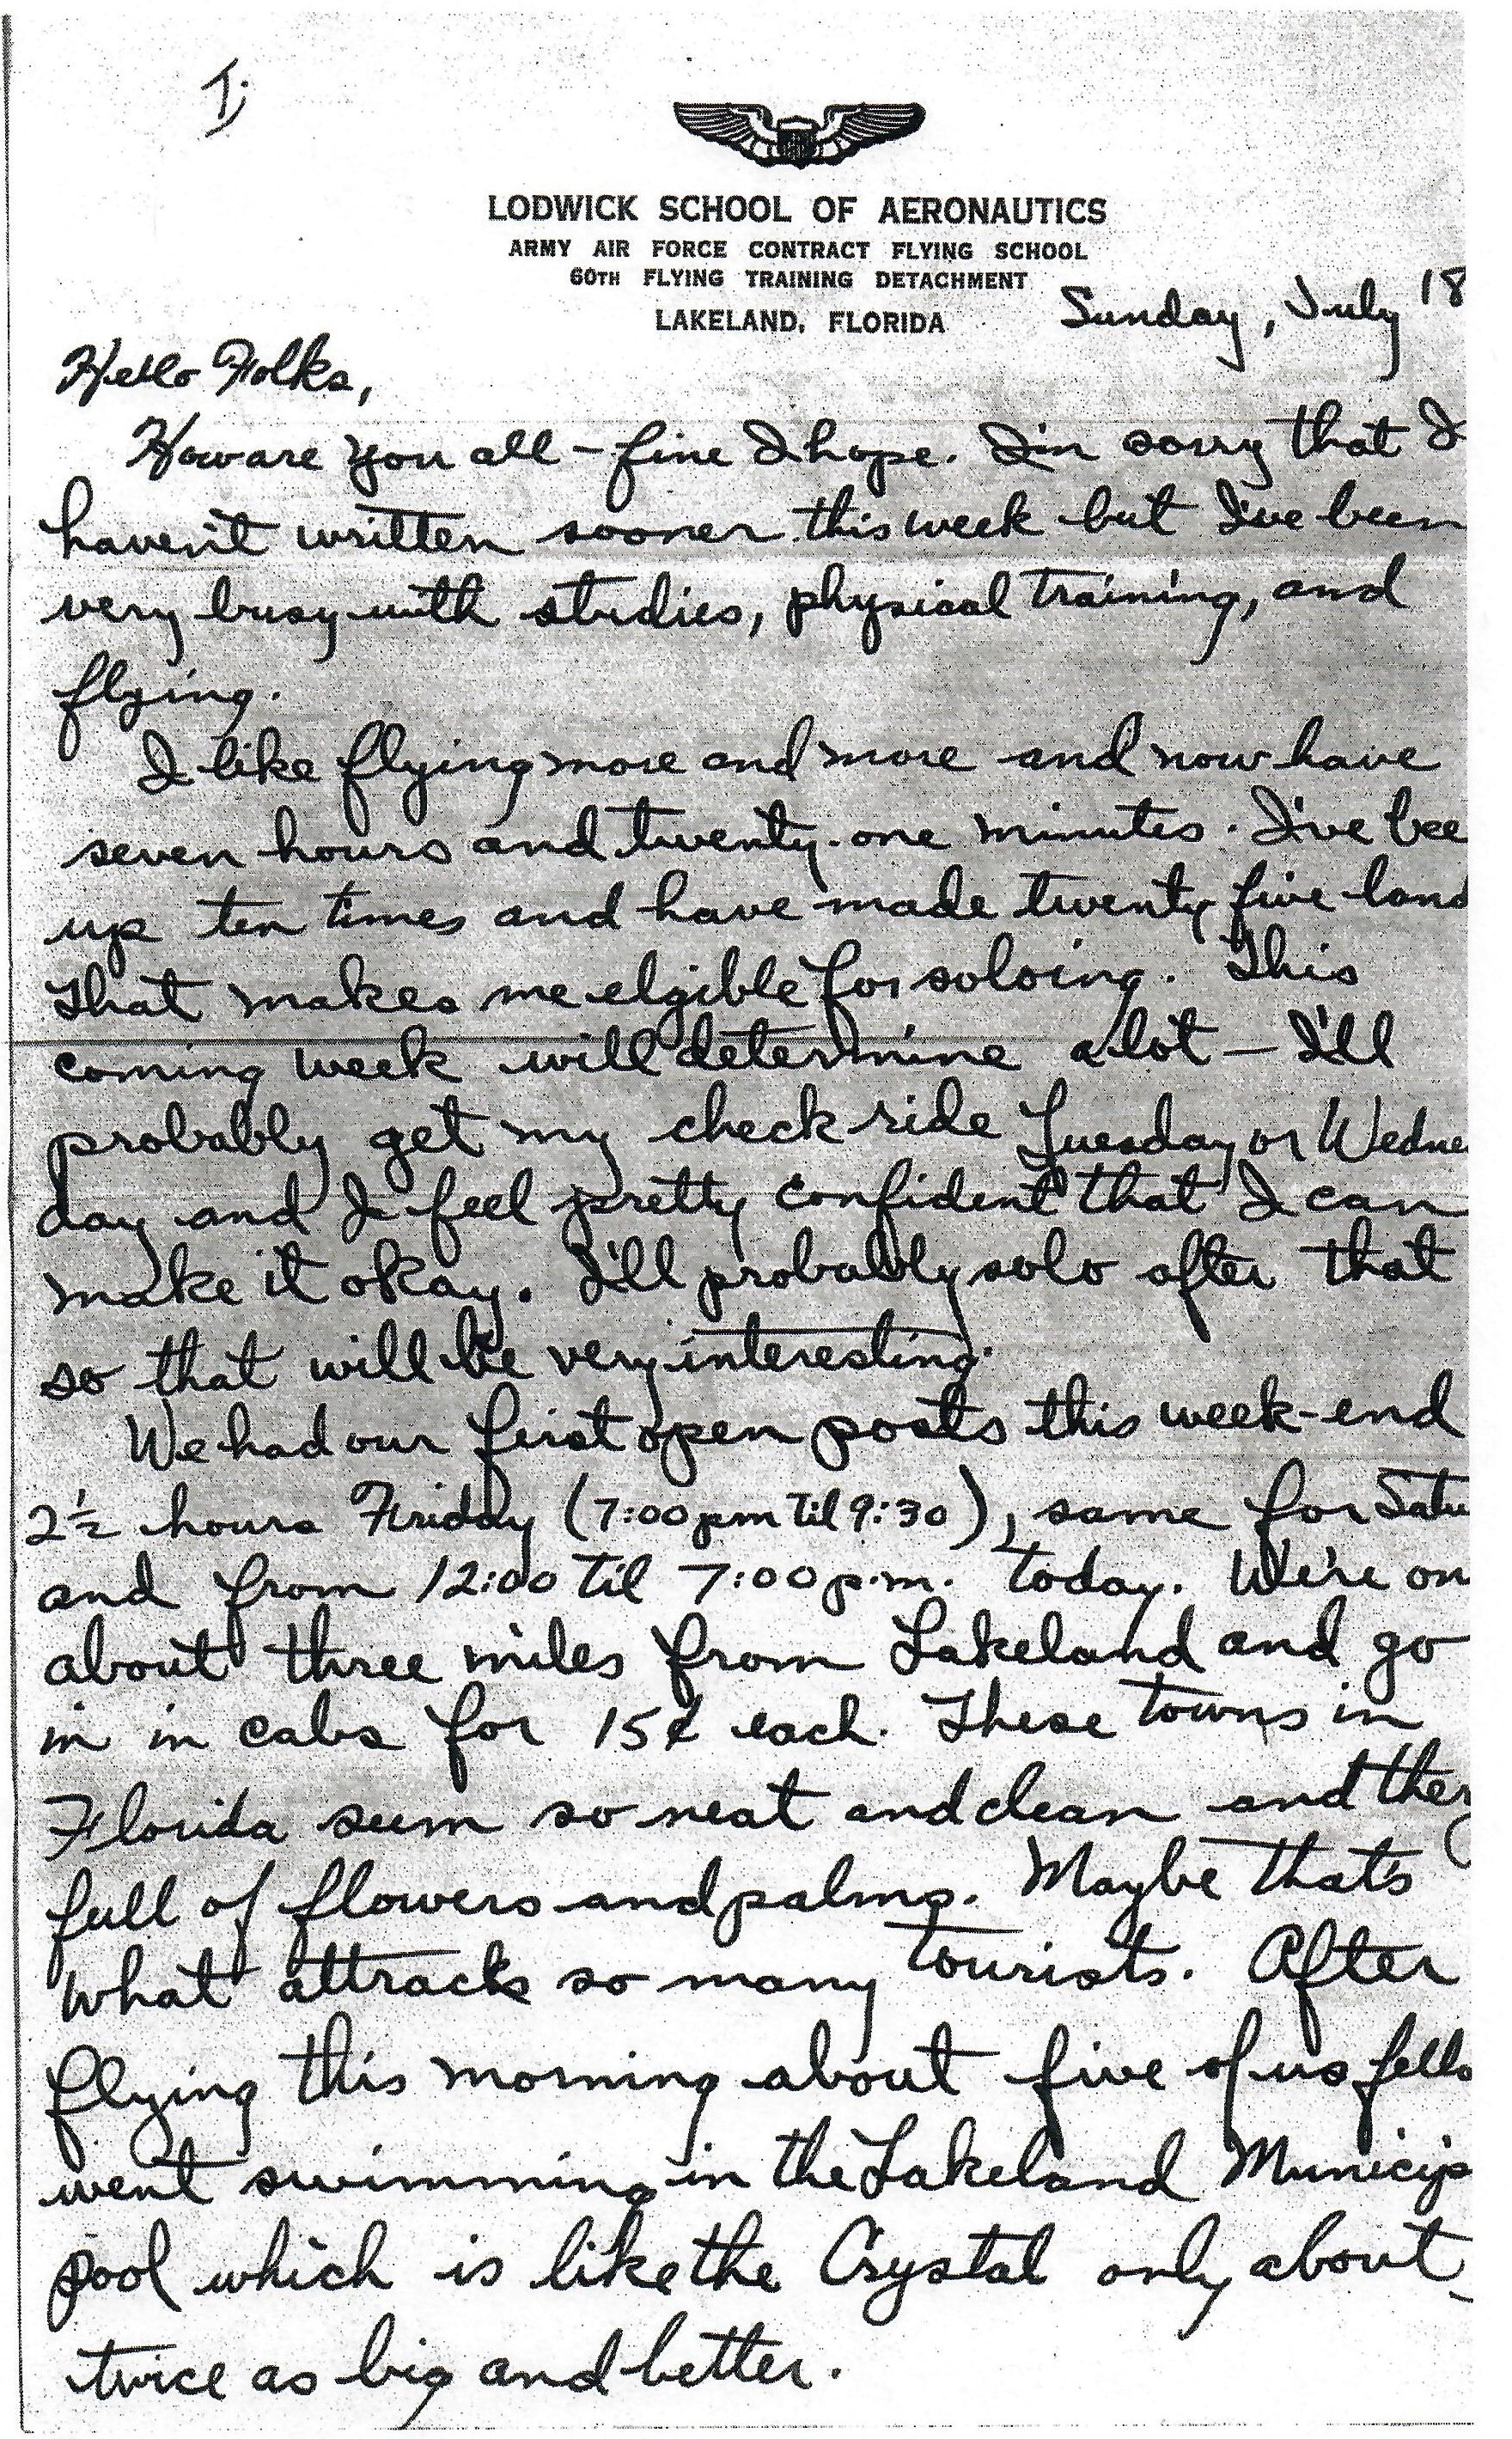 I
LODWICK SCHOOL OF AERONAUTICS
ARMY AIR FORCE CONTRACT FLYING SCHOOL
60TH FLYING TRAINING DETACHMENT
LAKELAND, FLORIDA
Sunday, July 18
Hello Folks,
How are you all - fine I hope. I'm sorry that I
haven't written sooner this week but I've been
very busy with studies, physical training, and
flying.
I like flying more and more and now have
seven hours and twenty-one minutes. I've bee
up ten times and have made twenty five land
That makes me elgible for soloing. This
coming week will determine alot - I'll
probably get my check ride Tuesday or Wednes
day and I feel pretty confident that I can
make it okay. I'll probably solo after that
so that will be very interesting.
We had our first open posts this week-end
2½ hours Friday (7:00 pm til 9:30), same for Satu
and from 12:00 til 7:00 p.m. today. We're on
about three miles from Lakeland and go
in in cabs for 15¢ each. These towns in
Florida seem so neat and clean and they
full of flowers and palms. Maybe that's
what attracks so many tourists. After
flying this morning about five of us fello
went swimming in the Lakeland Municip
pool which is like the Crystal only about
twice as big and better.